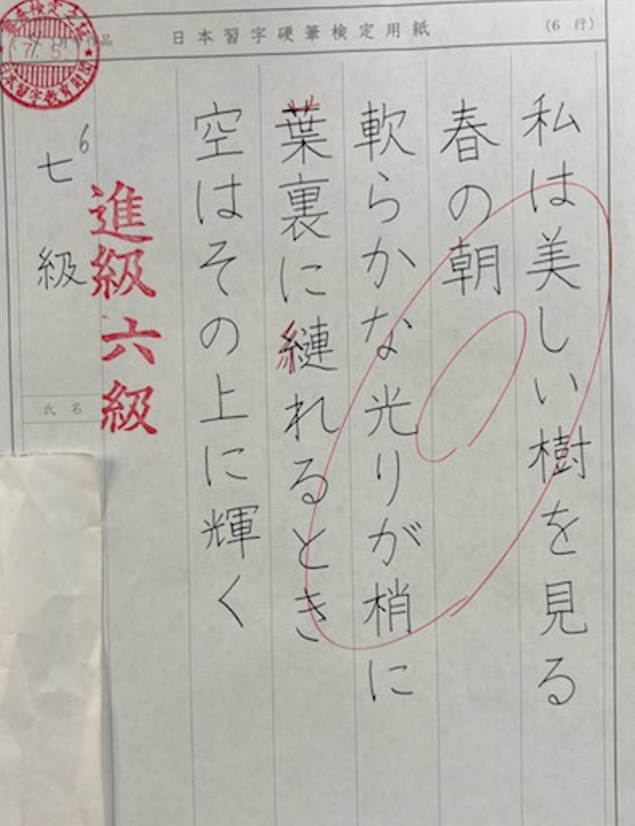 日本習字硬筆検定用紙
(6 行)
私は美しい樹を見る
春の朝
軟らかな光りが梢に
葉裏に縺れるとき
空はその上に輝く
進級六級
6
七級
氏名